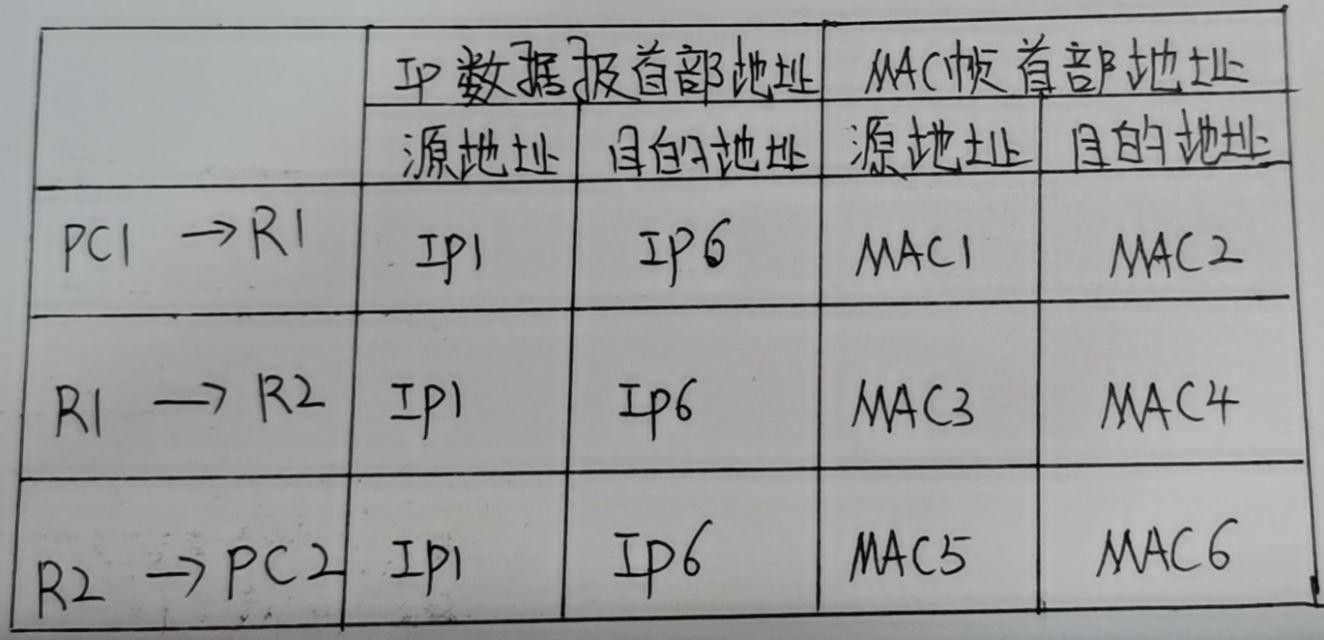 IP数据报首部地址 MAC帧首部地址
源地址 目的地址 源地址 目的地址
PC1 → R1 IP1 IP6 MAC1 MAC2
R1 → R2 IP1 IP6 MAC3 MAC4
R2 → PC2 IP1 IP6 MAC5 MAC6